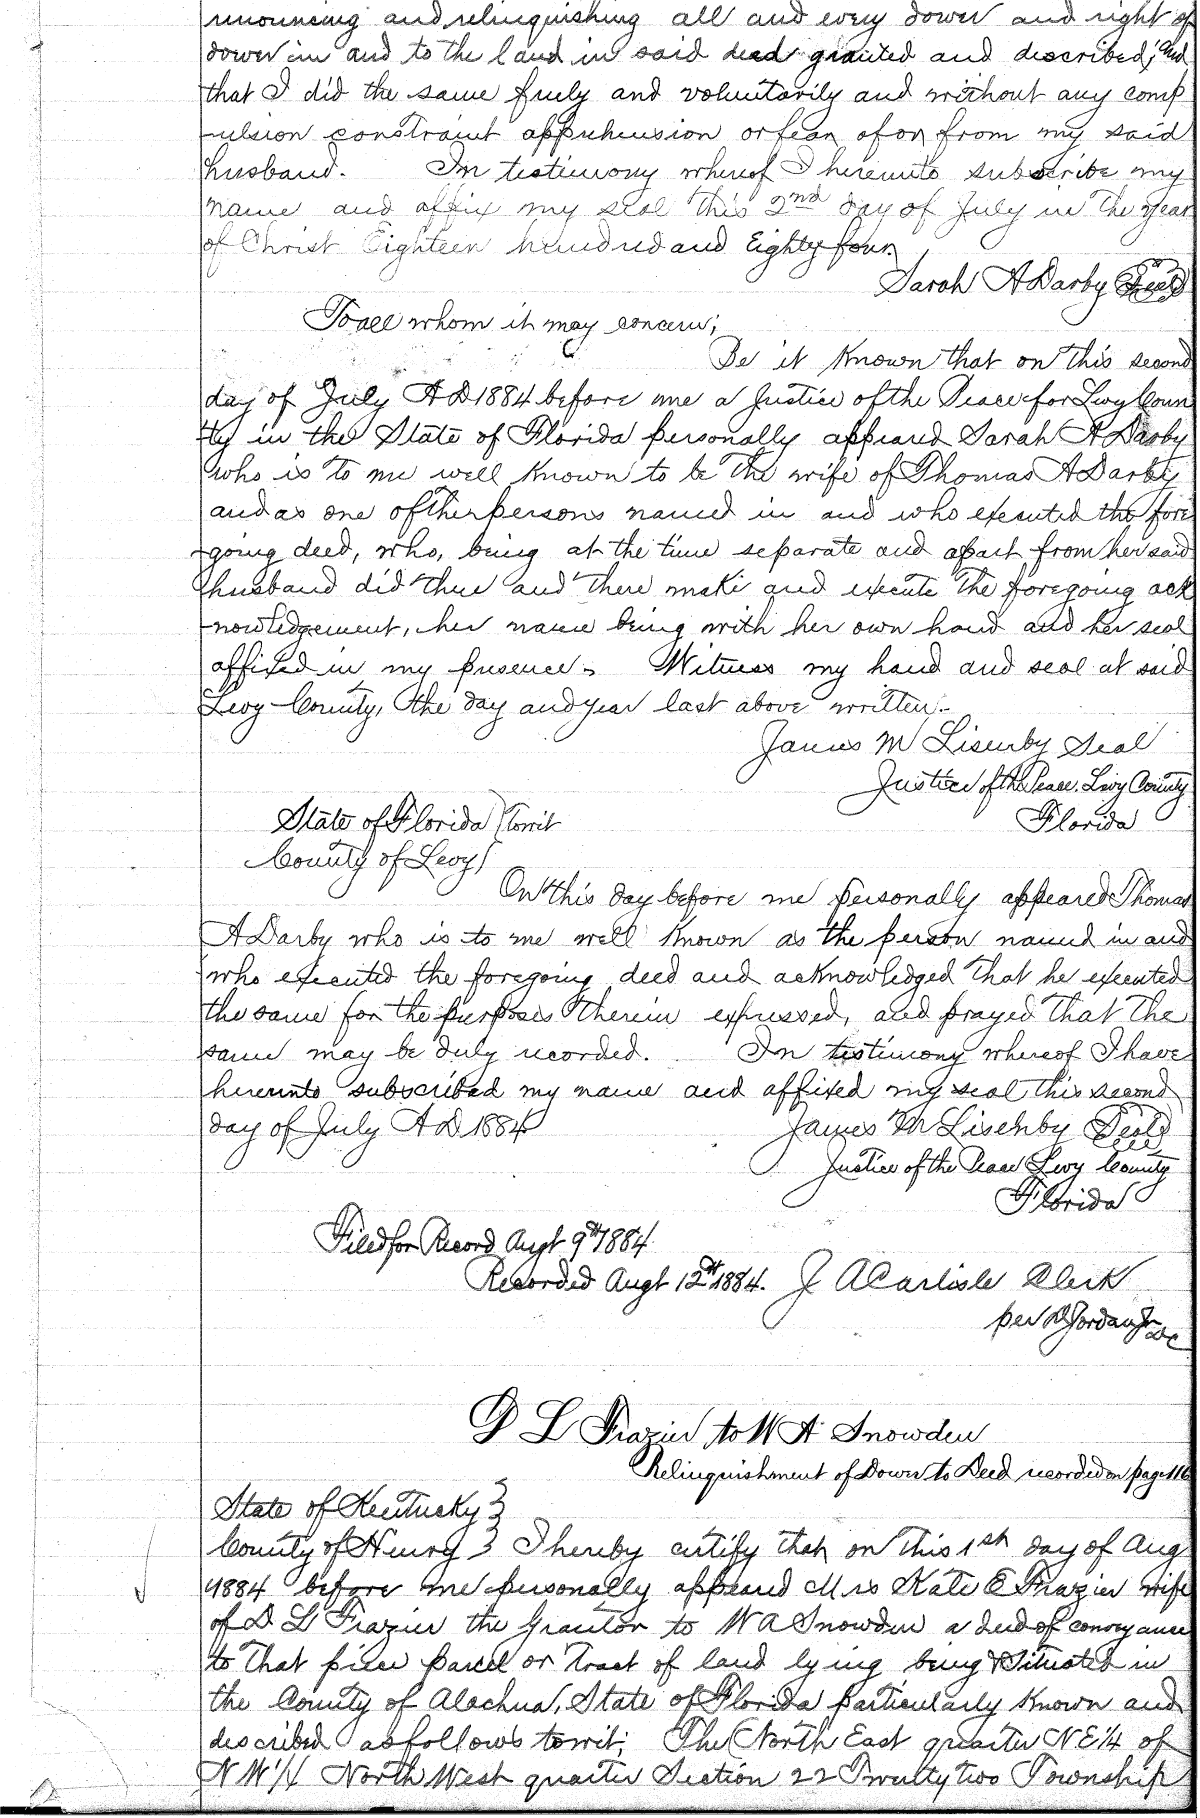 renouncing and relinquishing all and every dower and right of
dower in and to the land in said deed granted and described; and
that I did the same freely and voluntarily and without any comp
-ulsion constraint apprehension or fear of or from my said
husband. In testimony whereof I hereunto subscribe my
name and affix my seal this 2nd day of July in the year
of Christ Eighteen hundred and Eighty four.
Sarah A Darby Seal
To all whom it may concern;
Be it Known that on this second
day of July A D 1884 before me a Justice of the Peace for Levy Coun
ty in the State of Florida personally appeared Sarah A Darby
who is to me well Known to be the wife of Thomas A Darby
and as one of the persons named in and who executed the fore
-going deed, who, being at the time separate and apart from her said
husband did then and there make and execute the foregoing ack
-nowledgement, her name being with her own hand and her seal
affixed in my presence. Witness my hand and seal at said
Levy County, the day and year last above written.
James M Lisenby Seal
Justice of the Peace. Levy County
Florida
State of Florida } towit
County of Levy }
On this day before me personally appeared Thomas
A Darby who is to me well Known as the person named in and
who executed the foregoing deed and acknowledged that he executed
the same for the purposes therein expressed, and prayed that the
same may be duly recorded. In testimony whereof I have
hereunto subscribed my name and affixed my seal this second
day of July A D 1884 James M Lisenby Seal
Justice of the Peace Levy County
Florida
Filed for Record Augt 9th 1884
Recorded Augt 12th 1884. J A Carlisle Clerk
per D Jordan Jr DC
D L Frazier to W A Snowden
Relinquishment of Dower to Deed recorded on page 116
State of Kentucky }
County of Henry } I hereby certify that on this 1st day of Aug
1884 before me personally appeared Mrs Kate E Frazier wife
of D L Frazier the Grantor to W A Snowden a deed of conveyance
to that piece parcel or Tract of land lying being & Situated in
the County of Alachua, State of Florida particularly Known and
described as follows towit; The North East quarter N E 1/4 of
N W 1/4 North West quarter Section 22 Twenty two Township